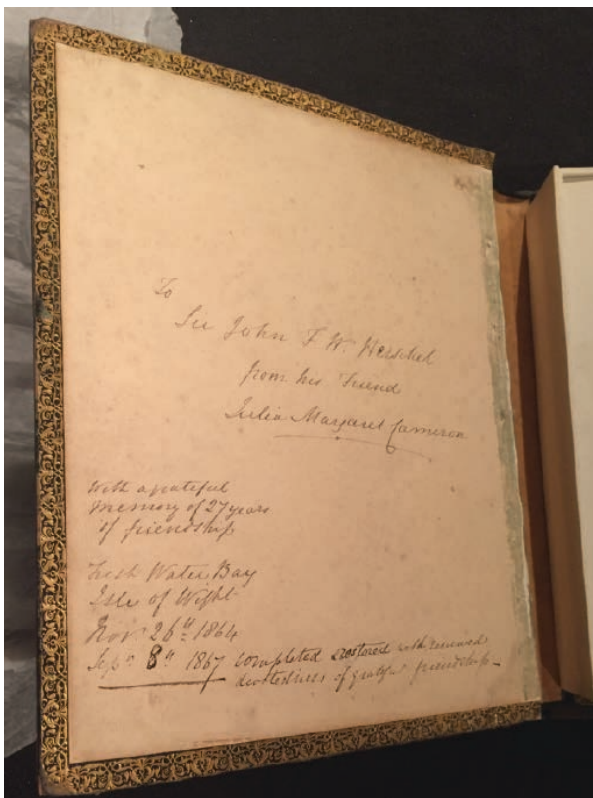 To
Sir John F. W. Herschel
from his Friend
Julia Margaret Cameron
with a grateful
memory of 27 years
of friendship
Fresh Water Bay
Isle of Wight
Nov 26th 1864
Sepr 8th 1867 completed & restored with renewed
devotedness of grateful friendship -